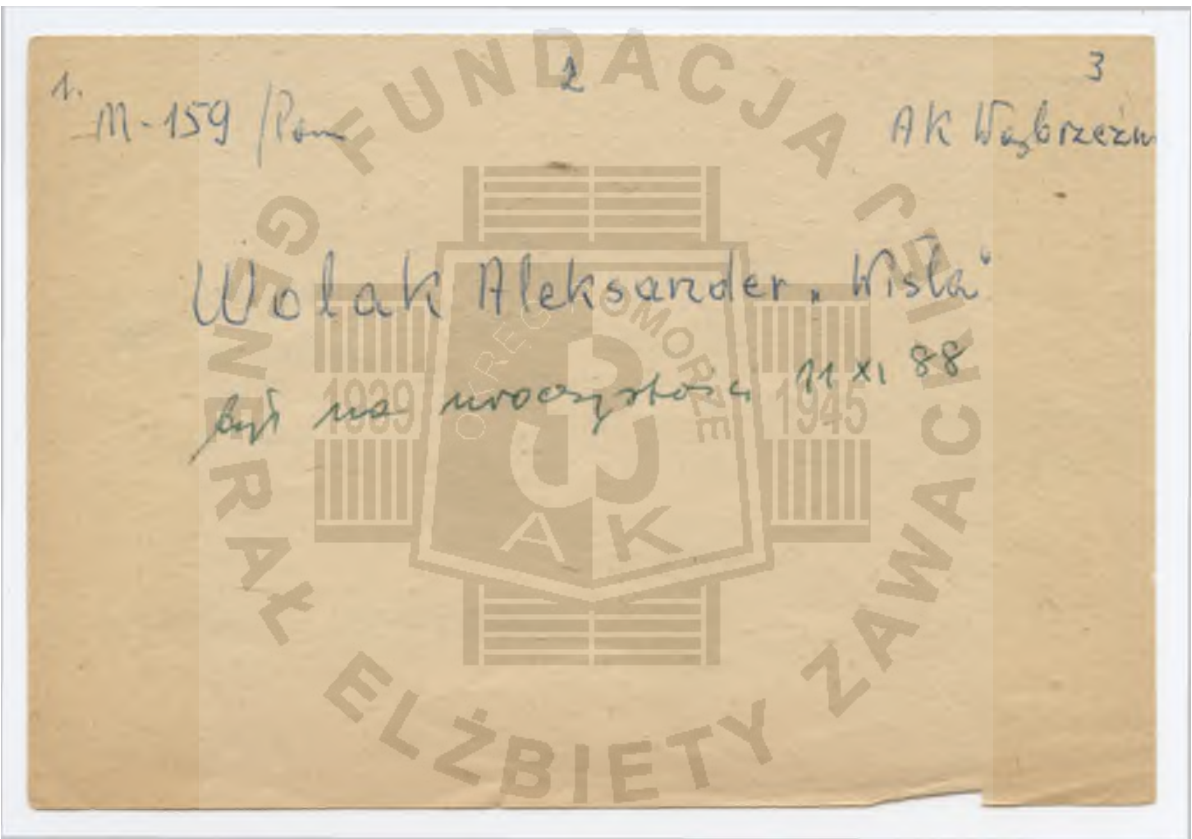 1. 2 3
M-159 /Pom AK Wąbrzeźn
Wolak Aleksander „Wisła"
był na uroczystości 11 XI 88
FUNDACJA JEJ
GENERAŁ ELŻBIETY ZAWACKIEJ
OKRĘG POMORZE
1939 1945
AK